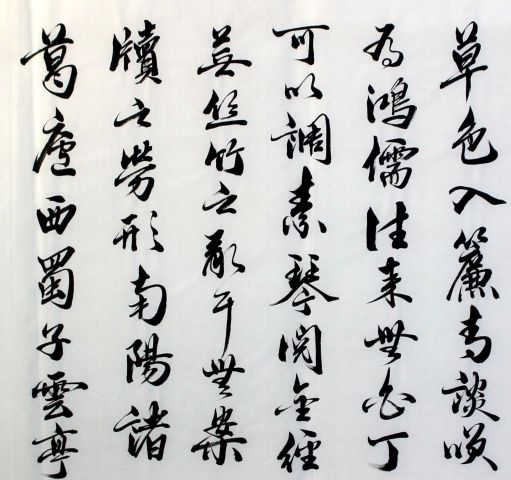 草色入簾青談咲
有鴻儒往来無白丁
可以調素琴閱金經
無絲竹之亂耳無案
牘之勞形南陽諸
葛廬西蜀子雲亭